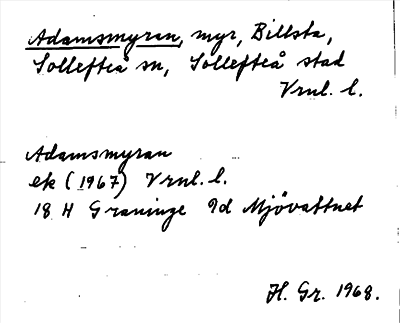 Adamsmyran, myr, Billsta,
Sollefteå sn, Sollefteå stad
Vrnl. l.
Adamsmyran
ek (1967) Vrnl. l.
18 H Graninge 9d Mjövattnet
H. Gr. 1968.